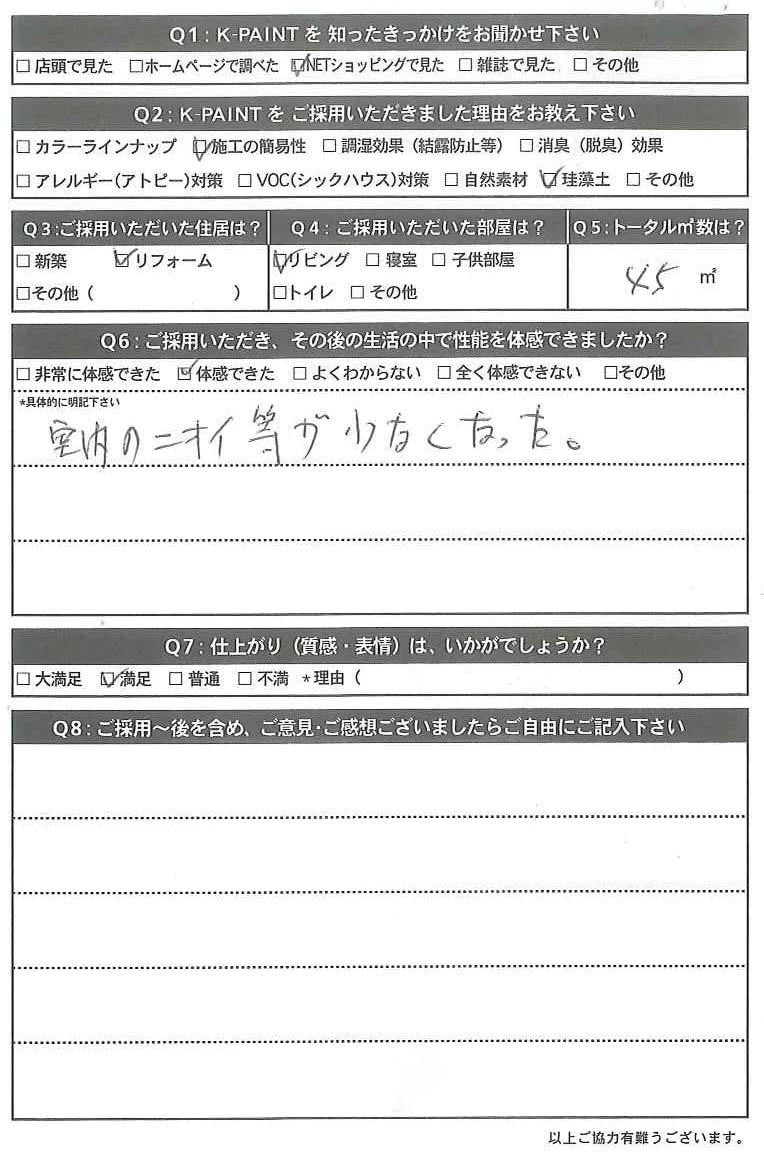 Q1:K-PAINTを 知ったきっかけをお聞かせ下さい
□ 店頭で見た □ホームページで調べた ☑NETショッピングで見た □ 雑誌で見た □ その他
Q2:K-PAINTを ご採用いただきました理由をお教え下さい
□ カラーラインナップ ☑施工の簡易性 □ 調湿効果(結露防止等) □ 消臭(脱臭)効果
□ アレルギー(アトピー)対策 □ VOC(シックハウス)対策 □ 自然素材 ☑珪藻土 □ その他
Q3:ご採用いただいた住居は? Q4:ご採用いただいた部屋は? Q5:トータル㎡数は?
□ 新築 ☑リフォーム ☑リビング □ 寝室 □ 子供部屋 45 ㎡
□その他( ) □トイレ □ その他
Q6:ご採用いただき、その後の生活の中で性能を体感できましたか?
□ 非常に体感できた ☑体感できた □ よくわからない □ 全く体感できない □その他
*具体的に明記下さい
室内のニオイ等が少なくなった。
Q7:仕上がり(質感・表情)は、いかがでしょうか?
□ 大満足 ☑満足 □ 普通 □ 不満 *理由( )
Q8:ご採用～後を含め、ご意見・ご感想ございましたらご自由にご記入下さい
以上ご協力有難うございます。